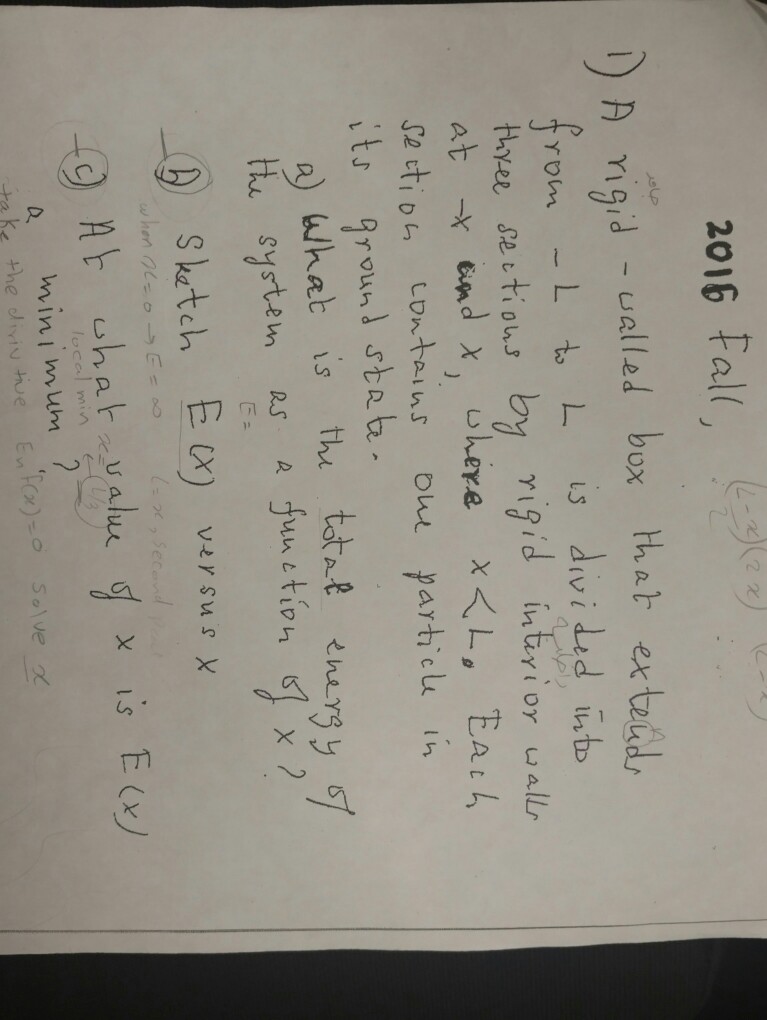 2016 Fall,
(L-x)(2x) (L-x)
1) A rigid-walled box that extends
from -L to L is divided into
three sections by rigid interior walls
at -x and x, where x<L. Each
section contains one particle in
its ground state.
a) What is the total energy of
the system as a function of x?
E=
b) Sketch E(x) versus x
when x=0 → E=∞
c) At what value of x is E(x)
local min x=(L/3)
a minimum?
take the dirivtive En f'(x)=0 solve x